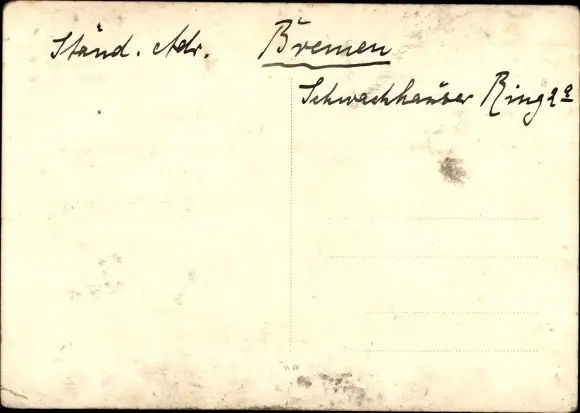 Ständ. Adr. Bremen
Schwachhauser Ring
WW